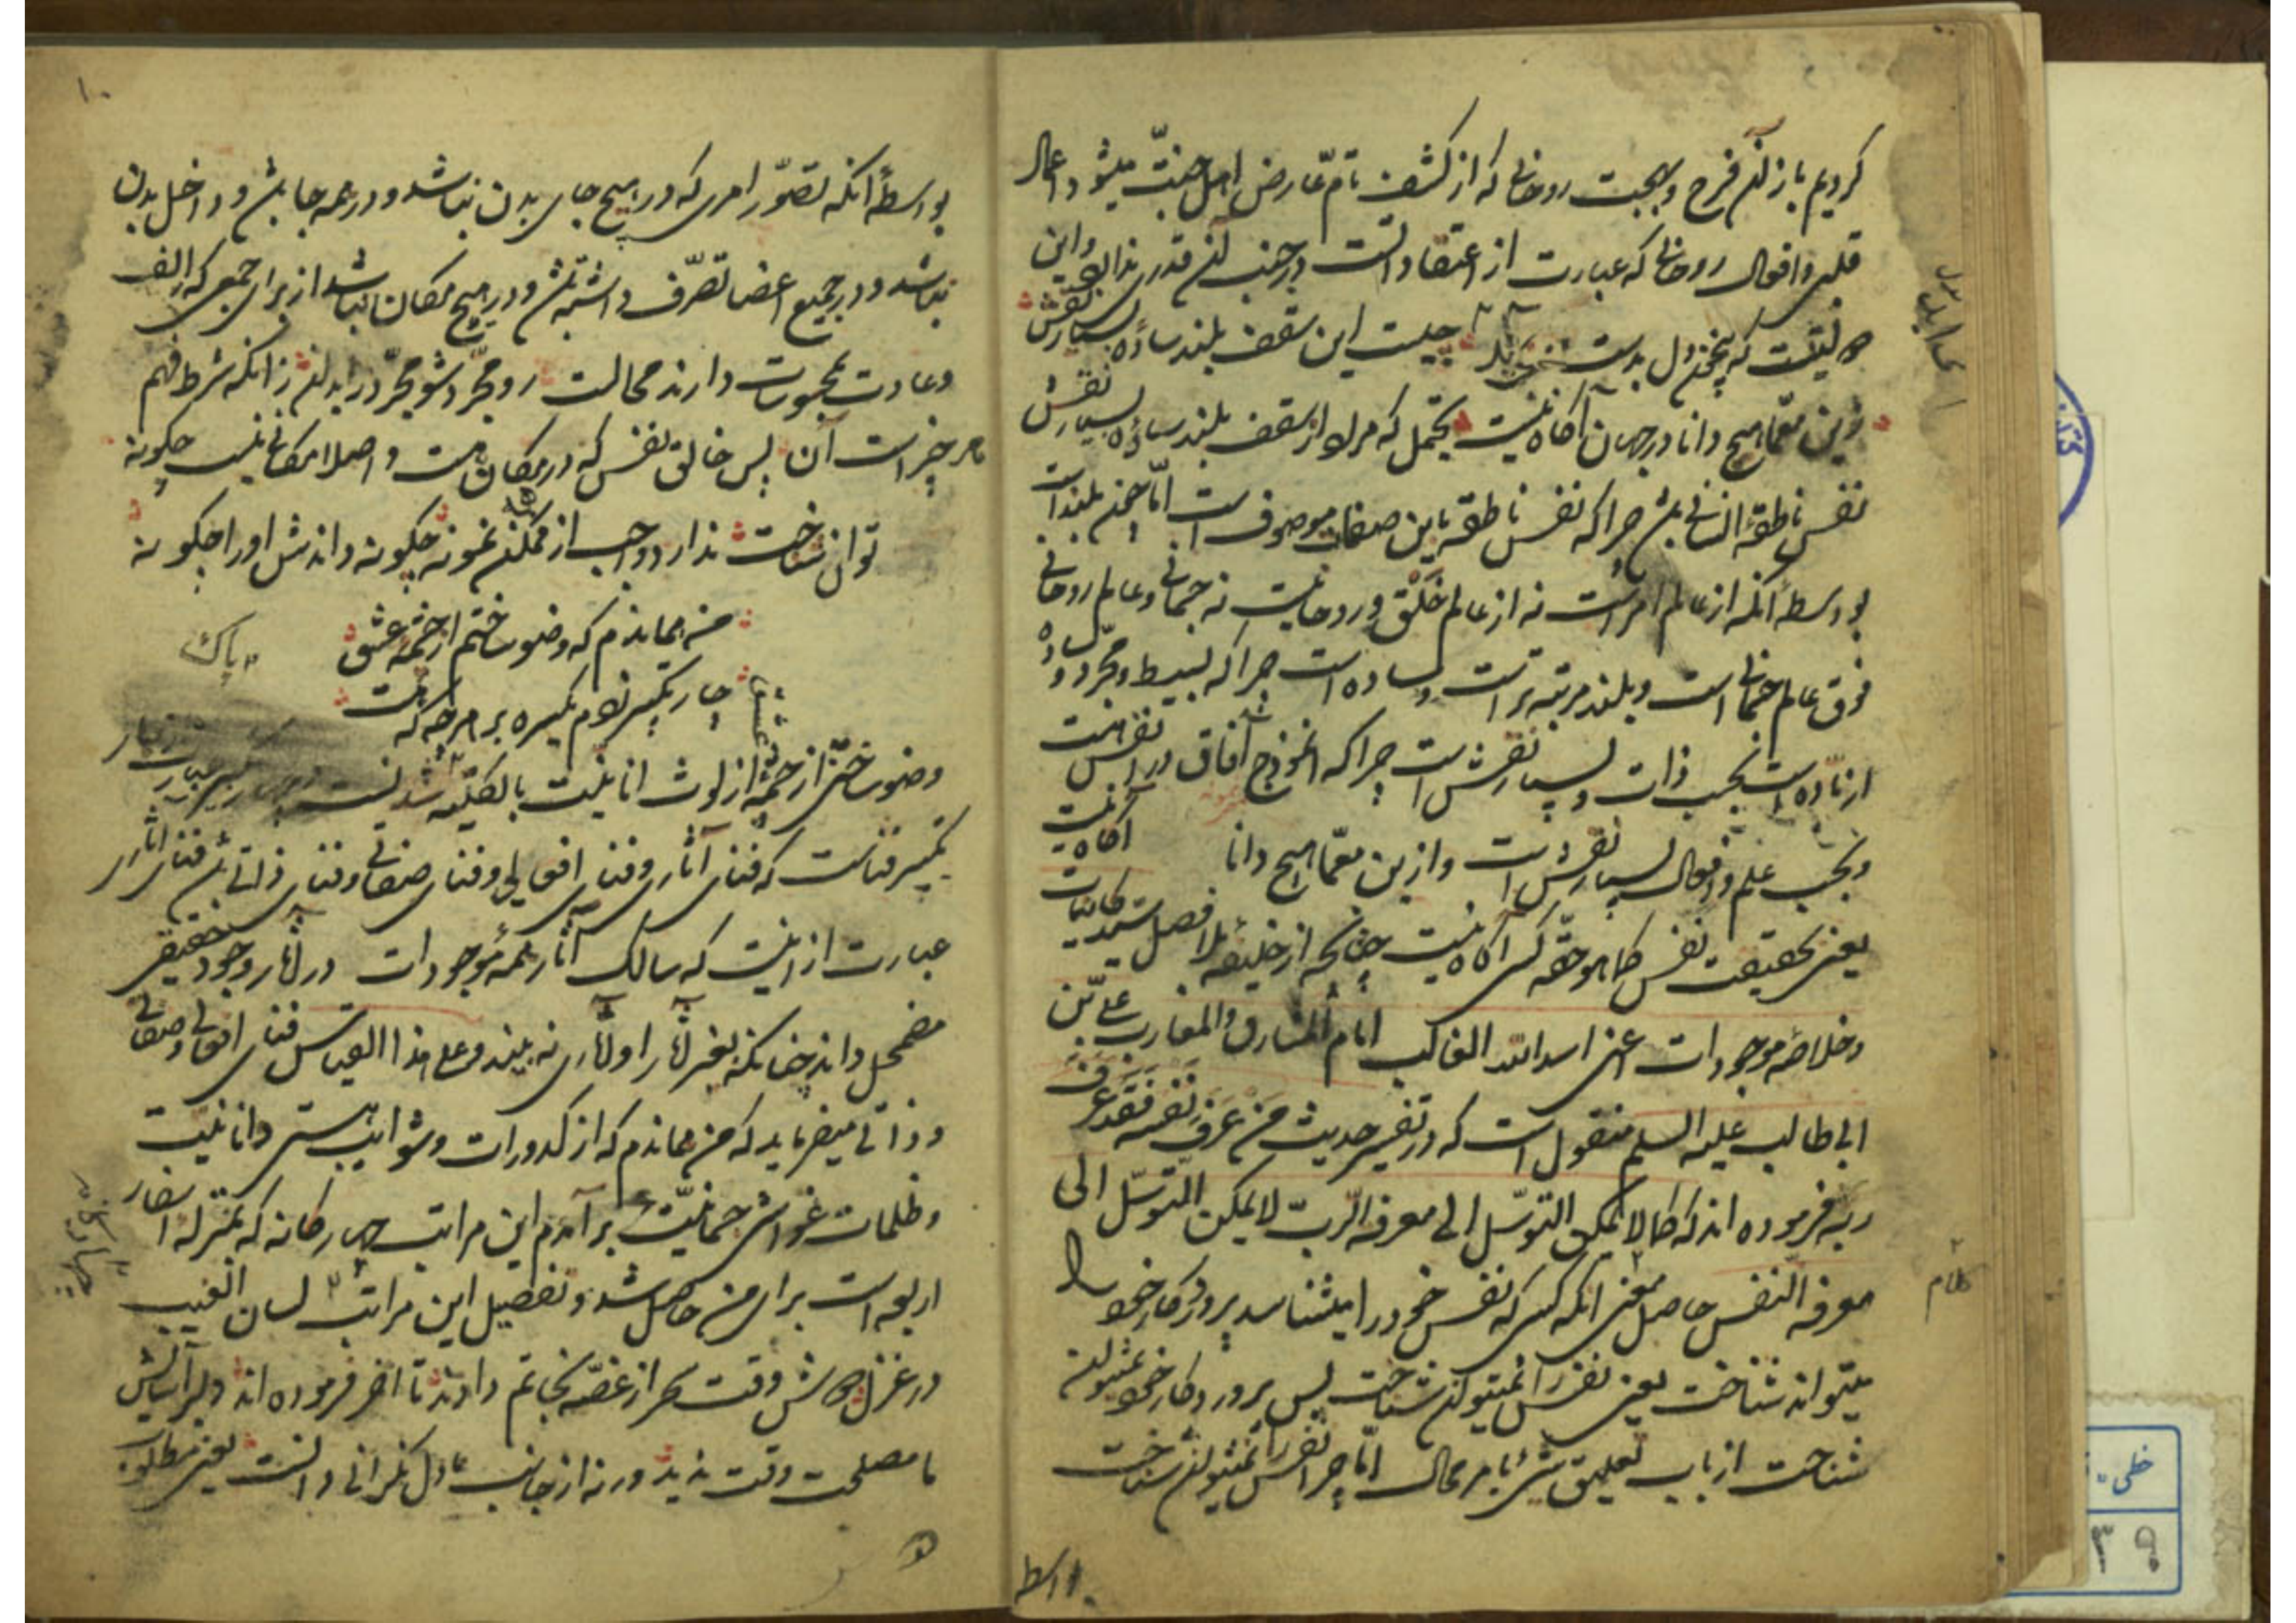 کردیم باز آن فرح و بهجت روحانی که از کشف تام عارض اهل جنت میشود و اعمال
قلبی و افعال روحانی که عبارت از اعتقاداتست در جنب آن قدری ندارد و این
حالتیست که بی خون دل بدست چیست این سقف بلند ساده بسیار نقش
زین معما هیچ دانا در جهان آگاه نیست یحتمل که مراد از سقف بلند ساده بسیار نقش
نفس ناطقه انسانی باشد چرا که نفس ناطقه باین صفات موصوف است اما چون بلند است
بواسطه آنکه از عالم امر است نه از عالم خلق و روحانیست نه جسمانی و عالم روحانی
فوق عالم جسمانی است و بلند مرتبه تر است و ساده است چرا که بسیط و مجرد و ساده
از ماده است بحسب ذات و بسیار نقش است چرا که انموذج آفاق در انفس است
و بحسب علم و افعال بسیار نقش است و ازین معما هیچ دانا آگاه نیست
یعنی بحقیقت نفس کما هو حقه کسی آگاه نیست چنانچه از خلیفه بلا فصل سید کاینات
و خلاصه موجودات اعنی اسد الله الغالب امام المشارق و المغارب علی بن
ابی طالب علیه السلم منقول است که در تفسیر حدیث من عرف نفسه فقد عرف
ربه فرموده اند که کما لا یمکن التوسل الی معرفه الرب لا یمکن التوسل الی
معرفه النفس حاصل معنی آنکه کسی که نفس خود را میشناسد پروردکار خود را
میتواند شناخت یعنی نفس را نمیتوان شناخت پس پروردکار خود نمیتوان
شناخت از باب تعلیق شیء بامر محال اما چرا نفس را نمیتوان شناخت
بواسطه
کلام
۱۰
بواسطه آنکه تصور امری که در هیچ جای بدن نباشد و در همه جا باشد و داخل بدن
نباشد و در جمیع اعضا تصرف داشته باشد و در هیچ مکان نباشد از برای جمعی که الف
و عادت بمحسوسات دارند محالست رو مجرد شو مجرد را ببین زانکه شرط فهم
هر چیز است آن پس خالق نفس که در مکان نیست و اصلا مکانی نیست چکونه
توان شناخت ندارد واجب از ممکن نمونه چکونه داندش او را چکونه
من هماندم که وضو ساختم از چشمه عشق
چار تکبیر زدم یکسره بر هر چه که هست
پاک
وضو ساختن از چشمه از لوث انانیت بالکلیه شدنست
تکبیر فناست که فنای آثاری و فنای افعالی و فنای صفاتی و فنای ذاتی باشد فنای آثاری
عبارت از اینست که سالک آثار همه موجودات در آثار وجود حقیقی
مضمحل داند چنانکه بغیر آثار او آثاری نه بیند و علی هذا القیاس فنای افعالی و صفاتی
و ذاتی میفرماید که من هماندم که از کدورات و شوایب هستی و انانیت
و ظلمات غواشی جسمانیت بر آمدم این مراتب چهار کانه که بمنزله اسفار
اربعه است برای من حاصل شد و تفصیل این مراتب لسان الغیب
در غزل دوش وقت سحر از غصه نجاتم دادند تا آخر فرموده اند دلبر آسایش
ما مصلحت وقت ندید ورنه از جانب ما دل نگرانی دانست یعنی مطلوب
خطی